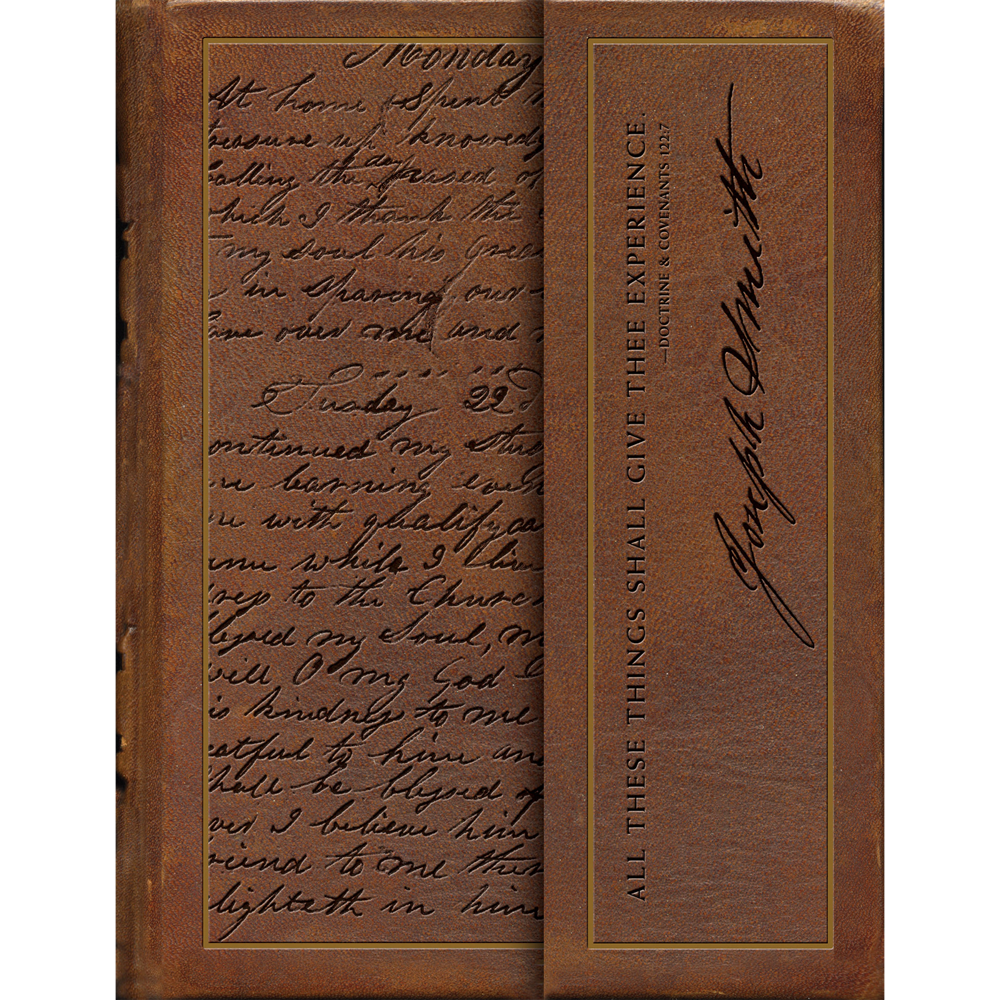 Monday
At home Spent
treasure up knowledg
calling the day passed of
which I thank the
my soul his grea
in sparing our
over me and
Tuesday 22
continued my stud
learning even
me with qualifyca
me while I live
to the Church
blessed my Soul, m
will O my God
is kindness to me
eatful to him an
shall be blessed of
ver I believe him
riend to me then
lighteth in him
ALL THESE THINGS SHALL GIVE THEE EXPERIENCE.
—DOCTRINE & COVENANTS 122:7
Joseph Smith